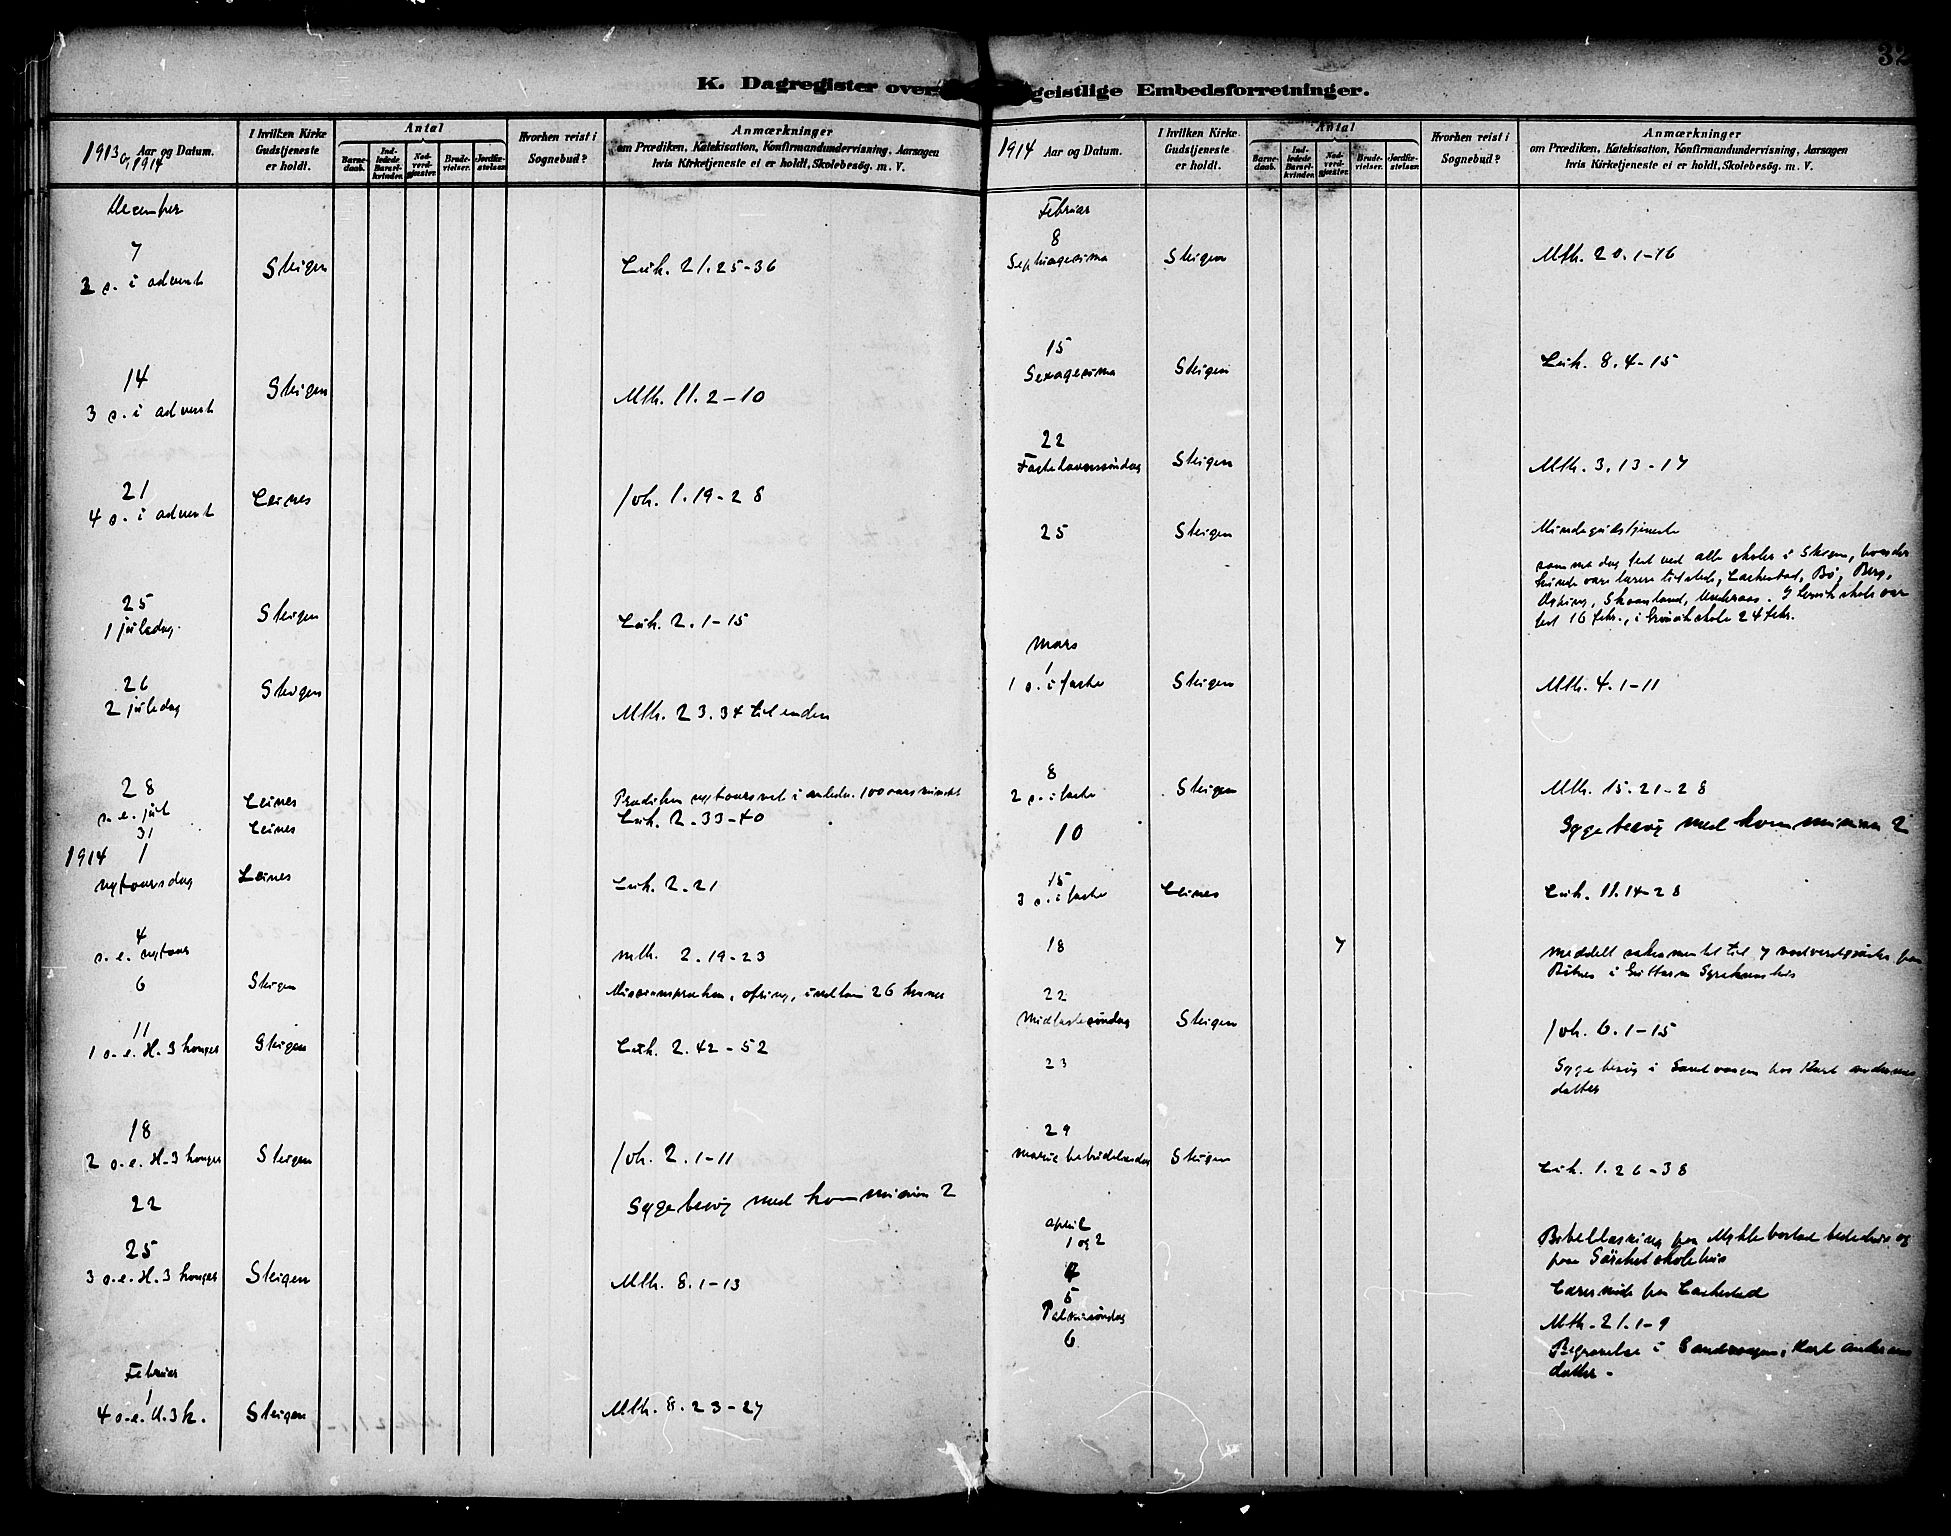 K. Dagregister over geistlige Embedsforretninger.
32
1913 og 1914 Aar og Datum.
I hvilken Kirke Gudstjeneste er holdt.
Antal
Barnedaab.
Indledede Barselkvinder.
Nadverdgjæster.
Brudevielser.
Jordfæstelser.
Hvorhen reist i Sognebud?
Anmærkninger
om Prædiken, Katekisation, Konfirmandundervisning, Aarsagen
hvis Kirketjeneste ei er holdt, Skolebesøg. m. V.
December
7
2 s. i advent Steigen Luk. 21.25-36
14
3 s. i advent Steigen Mth. 11.2-10
21
4 s. i advent Leines Joh. 1.19-28
25
1 juledag. Steigen Luk. 2.1-15
26
2 juledag Steigen Mth. 23.34 til enden
28
s. e. jul Leines Luk. 2.33-40
31 Leines Prædiken nytaarsvel i anledn. 100 aars mindet
1914 1
nytaarsdag Leines Luk. 2.21
4
s. e. nytaar Mth. 2.19-23
6 Steigen Missionspræken, ofring, indkom 26 kroner
11
1 s. e. H. 3 konger Steigen Luk. 2.42-52
18
2 s. e. H. 3 konger Steigen Joh. 2.1-11
22 Sygebesøg med kommunion 2
25
3 s. e. H. 3 konger Steigen Mth. 8.1-13
Februar
1
4 s. e. H. 3 k. Steigen Mth. 8.23-27
1914 Aar og Datum.
I hvilken Kirke Gudstjeneste er holdt.
Antal
Barnedaab.
Indledede Barselkvinder.
Nadverdgjæster.
Brudevielser.
Jordfæstelser.
Hvorhen reist i Sognebud?
Anmærkninger
om Prædiken, Katekisation, Konfirmandundervisning, Aarsagen
hvis Kirketjeneste ei er holdt, Skolebesøg. m. V.
Februar
8
Septuagesima Steigen Mth. 20.1-16
15
Sexagesima Steigen Luk. 8.4-15
22
Fastelavnssøndag Steigen Mth. 3.13-17
25 Steigen Mindegudstjeneste
samme dag fest ved alle skoler i Steigen, hvor der
kunde være lærere tilstede, Laskestad, Bø, Berg,
Skaanland, skole var
fest 16 febr., i skole 24 febr.
Mars
1
1 s. i faste Steigen Mth. 4.1-11
8
2 s. i faste Steigen Mth. 15.21-28
10 Sygebesøg med kommunion 2
15
3 s. i faste Leines Luk. 11.14-28
18 7 meddelt sakramentet til 7 nadverdgjæster fra
i sykehus
22
Midfastesøndag Steigen Joh. 6.1-15
23 Sygebesøg i Sandvaagen hos
datter
29
Marie bebudelsesdag Steigen Luk. 1.26-38
April
1 og 2 Bibellæsning paa Myklebostad bedehus og
paa skolehus
4 Lærermøde paa Laskestad
5
Palmesøndag Mth. 21.1-9
6 Begravelse i Sandvaagen,
datter.